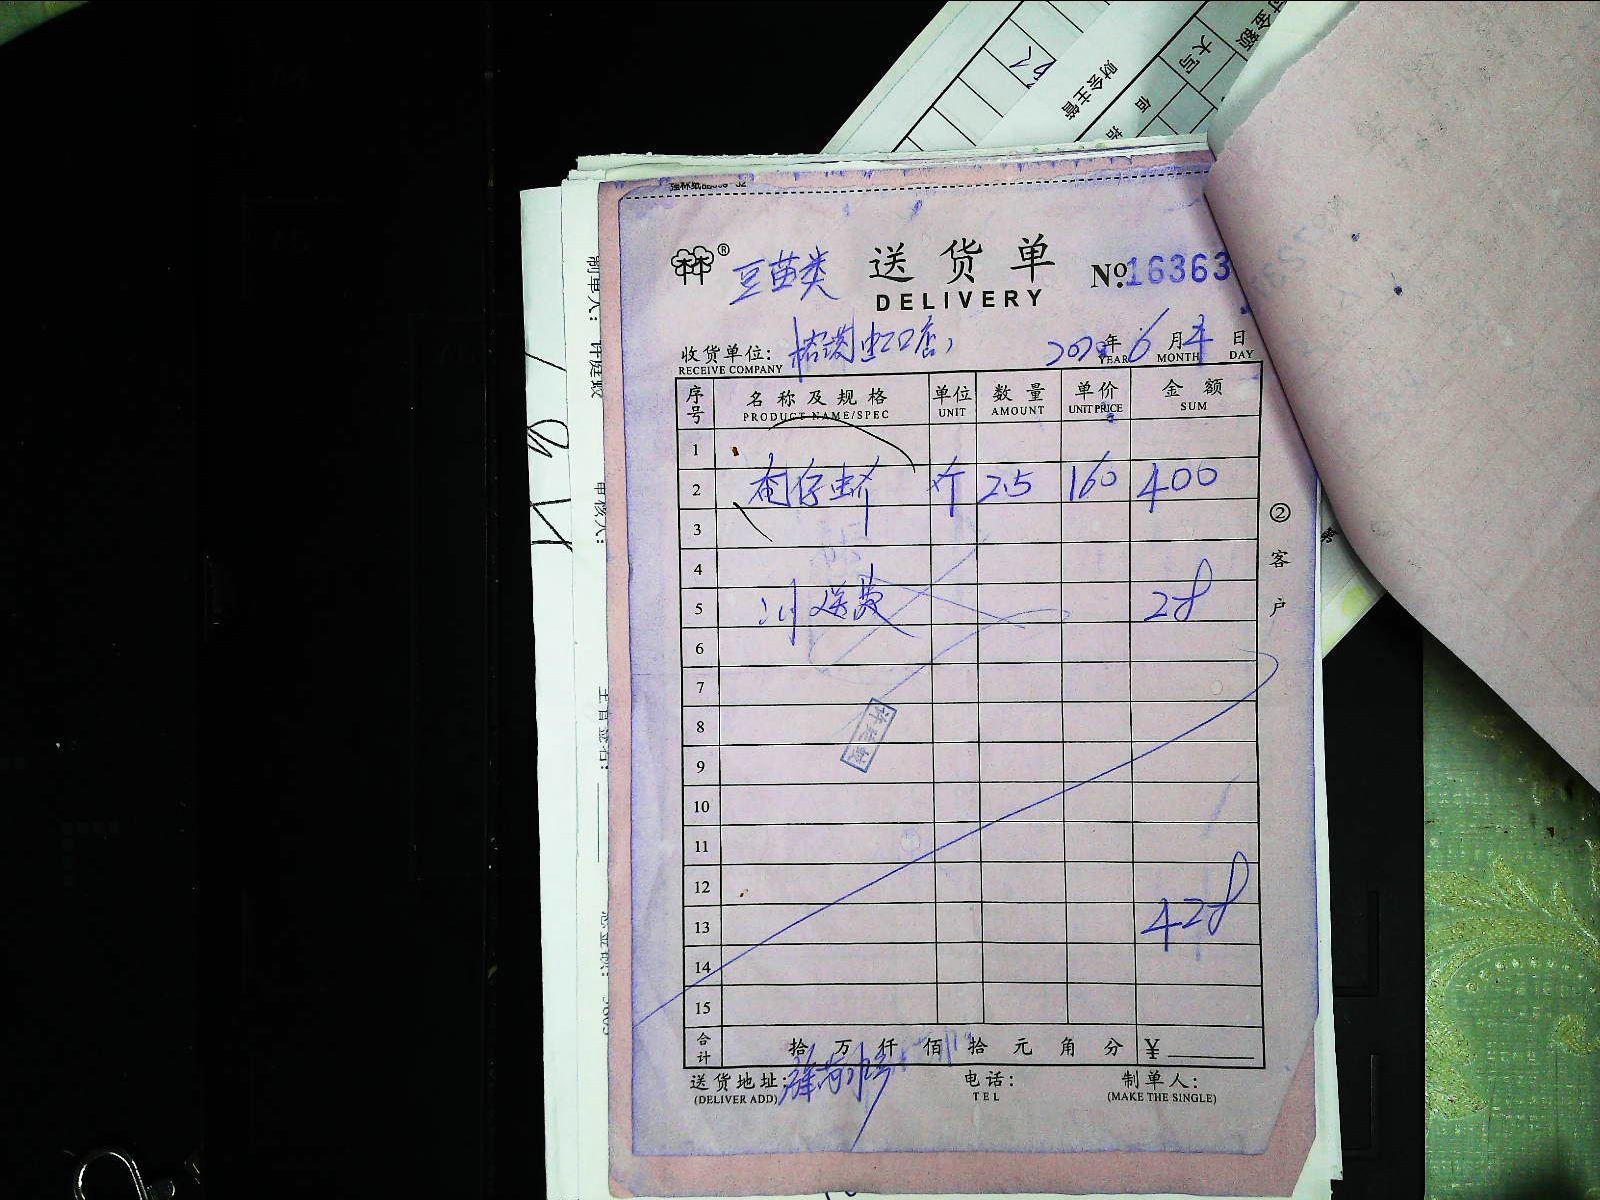 时金额
大写
财会主管
佰 拾
强林纸品
豆苗类 送货单 No.16363
DELIVERY
收货单位: 虹口店 2020年6月 日
RECEIVE COMPANY YEAR MONTH DAY
序号 名称及规格 单位 数量 单价 金额
PRODUCT NAME/SPEC UNIT AMOUNT UNIT PRICE SUM
1
2 斤 2.5 160 400
3
4
5 送费 28
6
7
8
9
10
11
12
13 428
14
15
合计 拾 万 仟 佰 拾 元 角 分 ¥
送货地址: 电话: 制单人:
(DELIVER ADD) TEL (MAKE THE SINGLE)
② 客户
制单人: 许庭蛟
审核人:
主管签名: